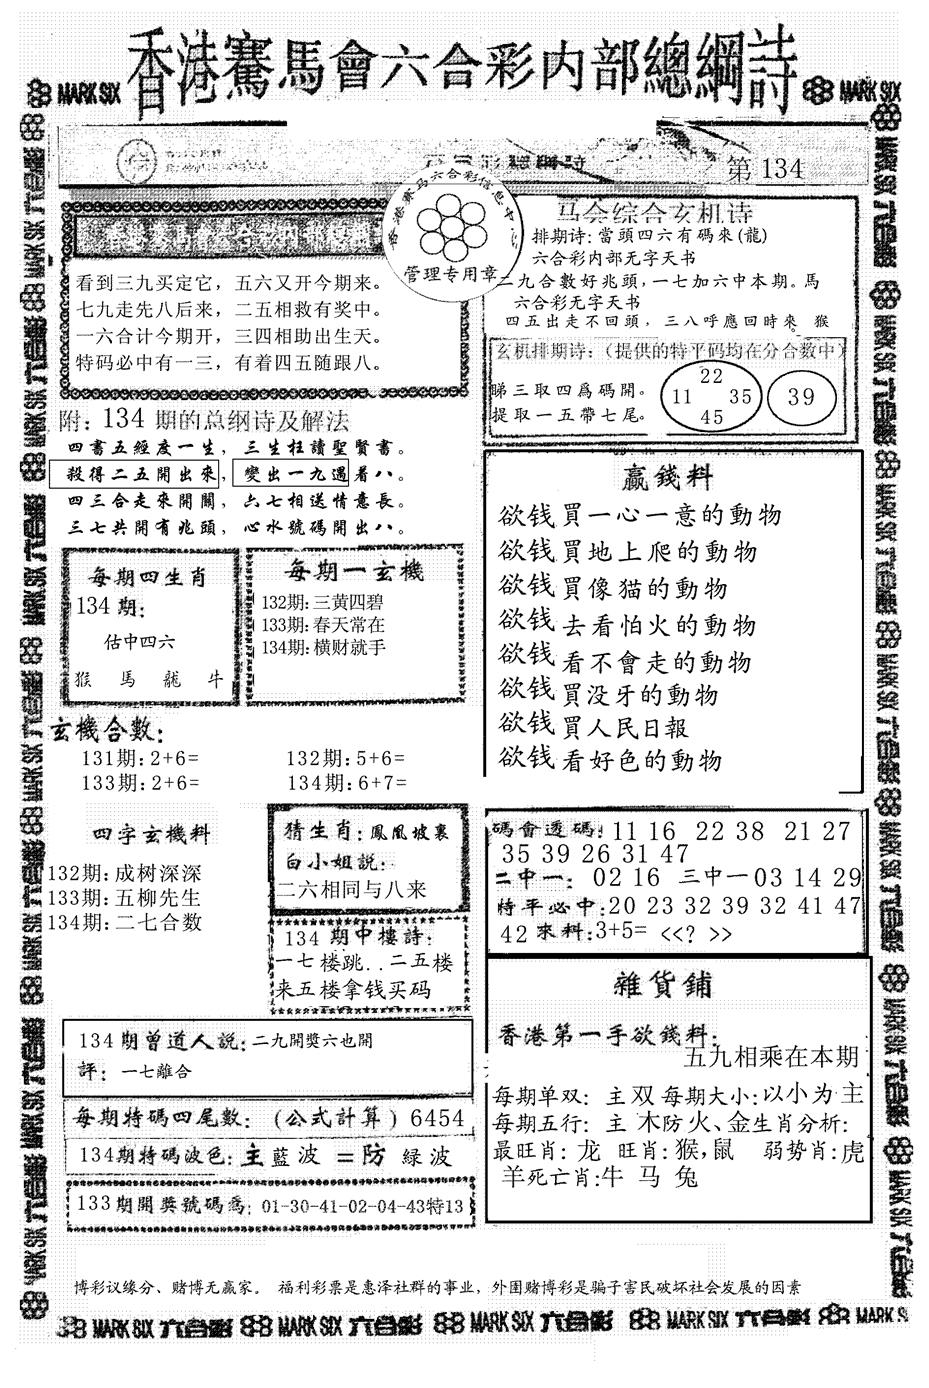 香港賽馬會六合彩内部總綱詩
MARK SIX
第 134
香港赛马六合彩信息中
管理专用章
看到三九买定它，五六又开今期来。
七九走先八后来，二五相救有奖中。
一六合计今期开，三四相助出生天。
特码必中有一三，有着四五随跟八。
马会综合玄机诗
排期诗:當頭四六有碼來(龍)
六合彩内部无字天书
二九合數好兆頭,一七加六中本期。馬
六合彩无字天书
四五出走不回頭，三八呼應回時來。猴
玄机排期诗:（提供的特平码均在分合数中）
睇三取四爲碼開。
提取一五帶七尾。
22
11 35
45
39
附: 134 期的总纲诗及解法
四書五經度一生，三生枉讀聖賢書。
殺得二五開出來，變出一九遇着八。
四三合走來開關，六七相送情意長。
三七共開有兆頭，心水號碼開出八。
每期四生肖
134 期:
估中四六
猴 馬 龍 牛
每期一玄機
132期:三黄四碧
133期:春天常在
134期:横财就手
赢錢料
欲钱買一心一意的動物
欲钱買地上爬的動物
欲钱買像猫的動物
欲钱去看怕火的動物
欲钱看不會走的動物
欲钱買没牙的動物
欲钱買人民日報
欲钱看好色的動物
玄機合數:
131期:2+6= 132期:5+6=
133期:2+6= 134期:6+7=
四字玄機料
132期:成树深深
133期:五柳先生
134期:二七合数
猜生肖:鳳凰坡裏
白小姐説:
二六相同与八来
134 期中樓詩:
一七楼跳..二五楼
来五楼拿钱买码
碼會透碼:11 16 22 38 21 27
35 39 26 31 47
二中一: 02 16 三中一03 14 29
特平必中:20 23 32 39 32 41 47
42 來料:3+5= <<? >>
雜貨鋪
香港第一手欲錢料:
五九相乘在本期
每期单双: 主双 每期大小:以小为主
每期五行: 主 木防火、金生肖分析:
最旺肖: 龙 旺肖:猴,鼠 弱势肖:虎
羊死亡肖:牛 马 兔
134期曾道人説:二九開獎六也開
評: 一七離合
每期特碼四尾數: (公式計算) 6454
134期特碼波色:主藍波 =防 緑波
133期開獎號碼爲: 01-30-41-02-04-43特13
博彩议缘分、赌博无赢家。 福利彩票是惠泽社群的事业，外围赌博彩是骗子害民破坏社会发展的因素
MARK SIX 六合彩 MARK SIX 六合彩 MARK SIX 六合彩 MARK SIX 六合彩 MARK SIX